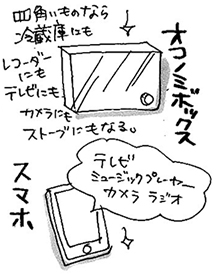 四角いものなら
冷蔵庫にも
レコーダー
にも
テレビにも
カメラにも
ストーブにもなる。
オコノミボックス
テレビ
ミュージックプレーヤー
カメラ ラジオ
スマホ、